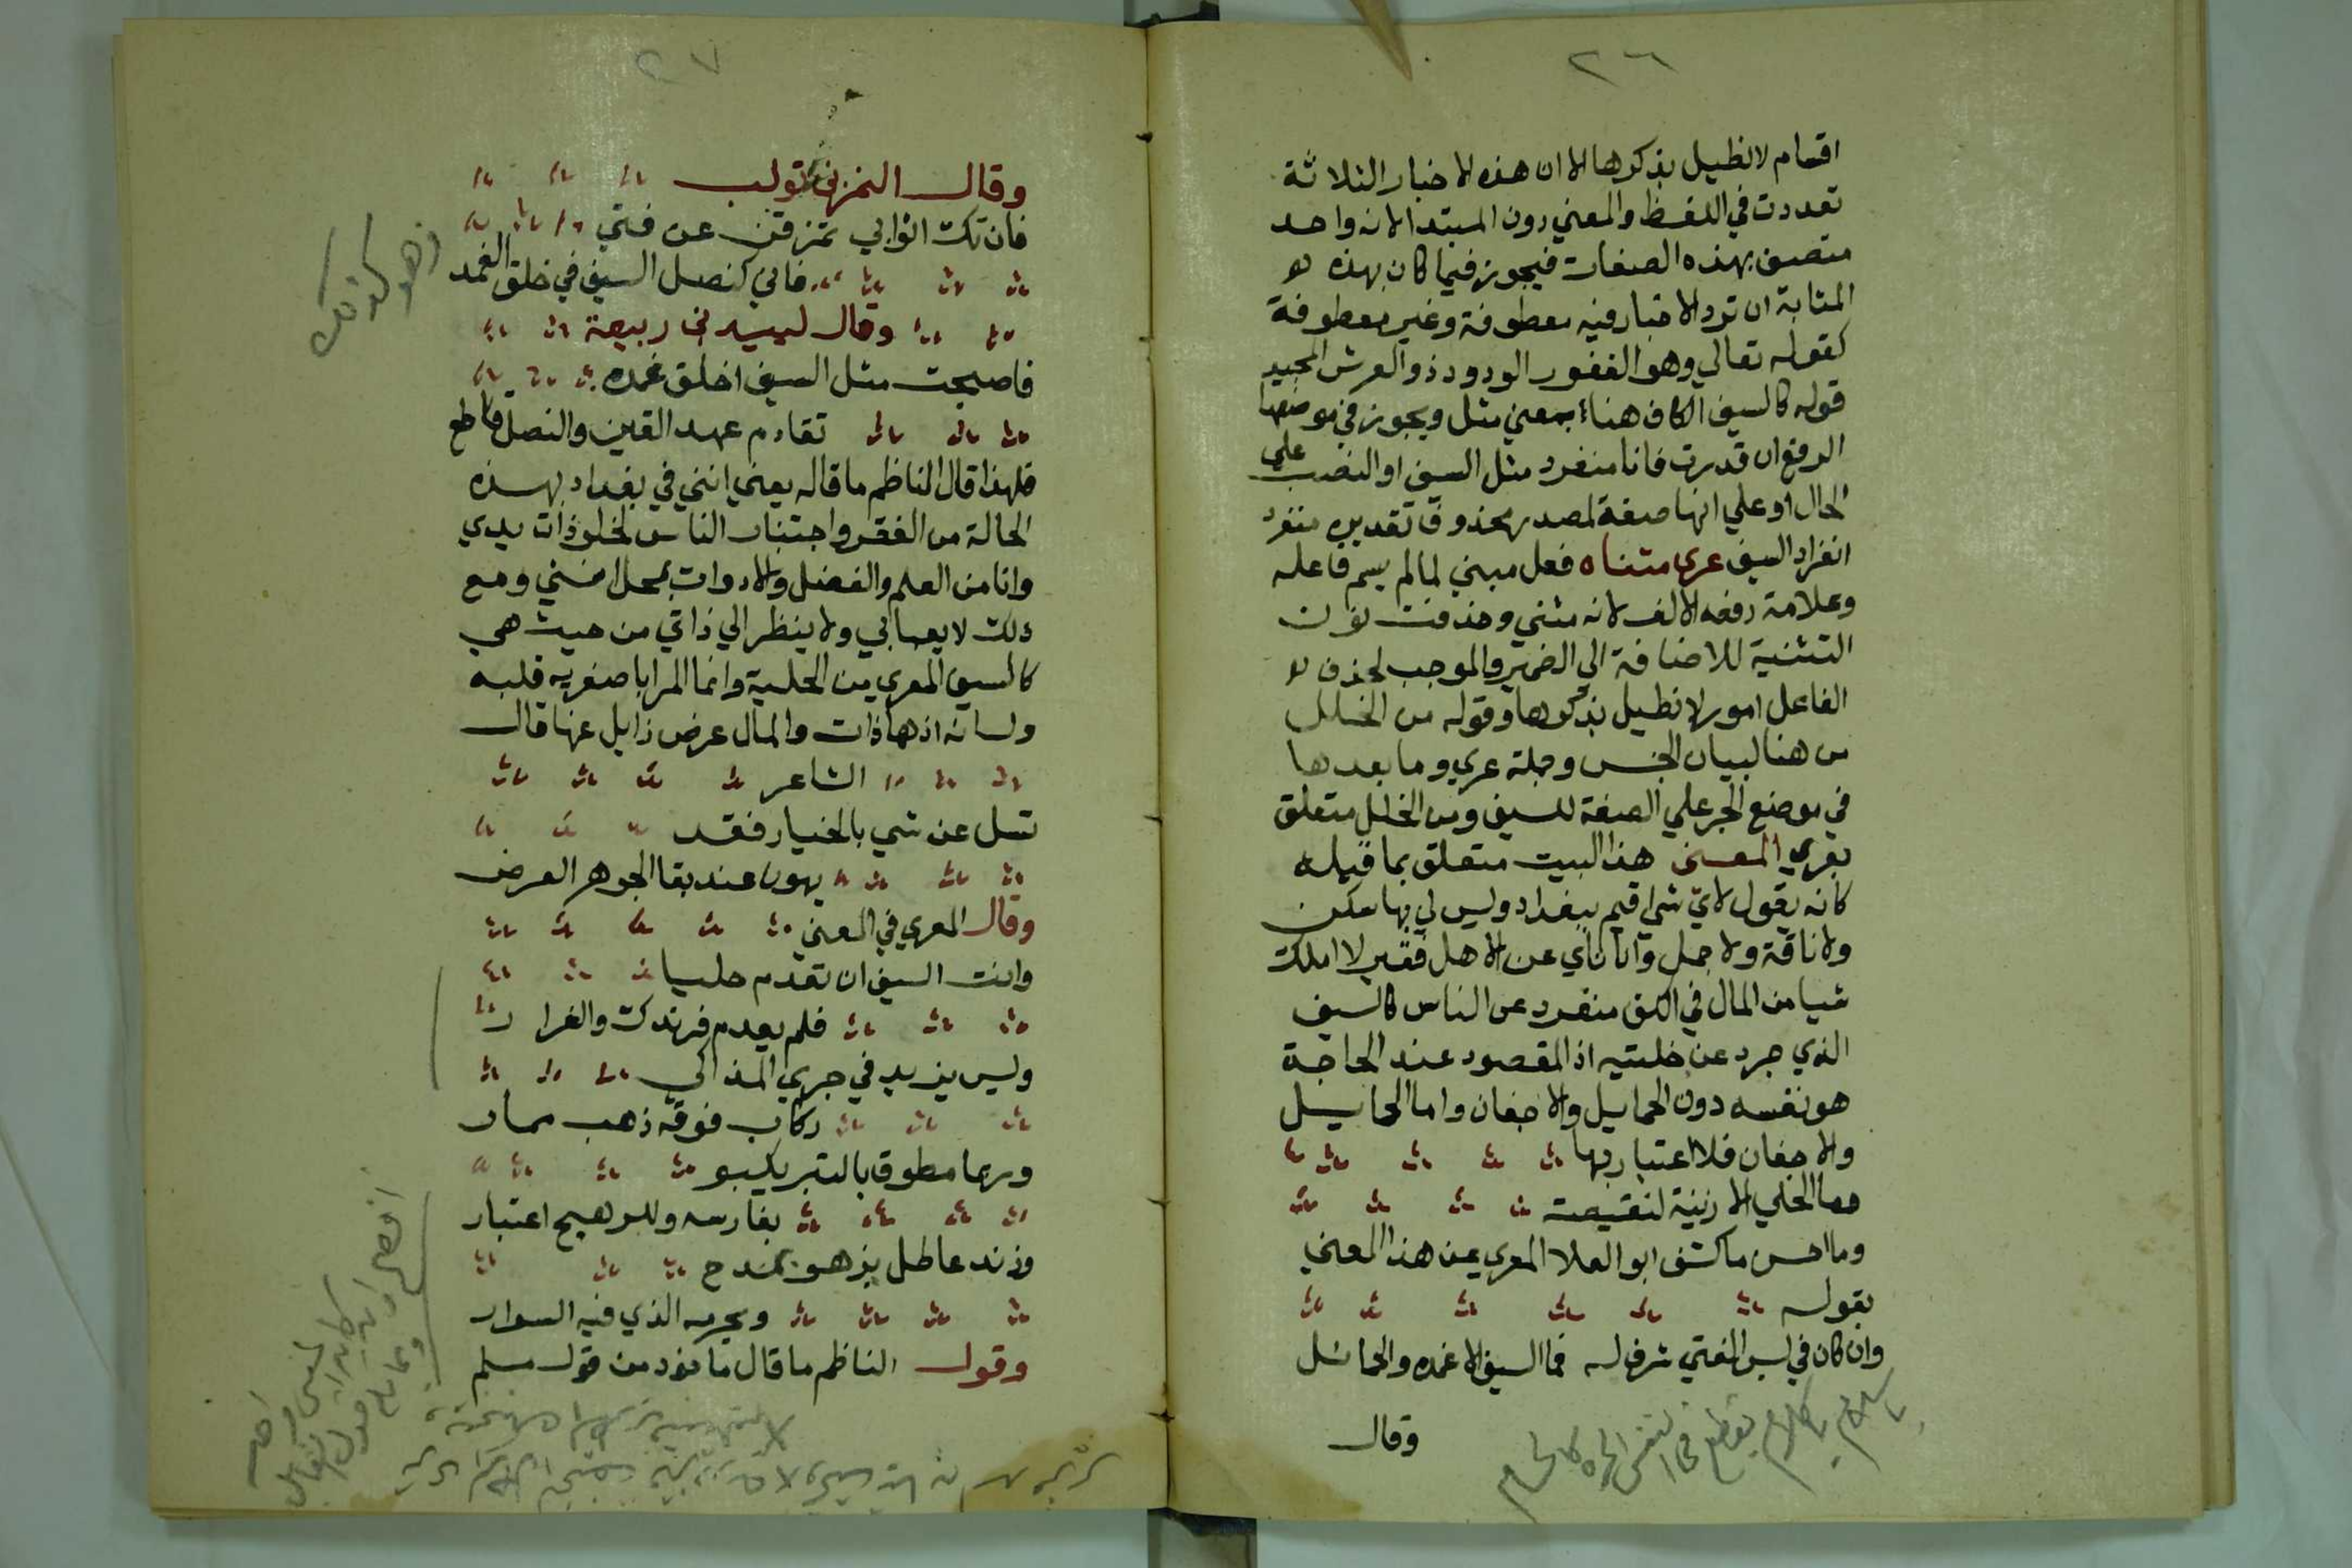 ٢٦
اقسام لا نطيل بذكرها الا ان هذه الاخبار الثلاثة
تعددت في اللفظ والمعني دون المبتدا لانه واحد
متصف بهذه الصفات فيجوز فيما كان بهذه
المثابة ان ترد الاخبار فيه معطوفة وغير معطوفة
كقوله تعالي وهو الغفور الودود ذو العرش المجيد
قوله كالسيف الكاف هنا بمعني مثل ويجوز في موضعها
الرفع ان قدرت فانا منفرد مثل السيف او النصب علي
الحال او علي انها صفة لمصدر محذوف تقديره منفرد
انفراد السيف عري متناه فعل مبني لما لم يسم فاعله
وعلامة رفعه الالف لانه مثني وحذفت نون
التثنية للاضافة الي الضمير والموجب لحذف
الفاعل امور لا نطيل بذكرها وقوله من الخلل
من هنا لبيان الجنس وجملة عري وما بعدها
في موضع الجر علي الصفة للسيف ومن الخلل متعلق
بعري المعني هذا البيت متعلق بما قبله
كانه يقول لاي شي اقيم ببغداد وليس لي بها سكن
ولا ناقة ولا جمل وانا ناي عن الاهل فقير لا املك
شيا من المال في الكف منفرد عن الناس كالسيف
الذي جرد عن خلتيه اذ المقصود عند الحاجة
هو نفسه دون الحمايل والاجفان واما الحمايل
والاجفان فلا اعتبار بها
وما الحلي الا زينة لنقيصة
وما احسن ما كشف ابو العلا المعري عن هذا المعني
بقوله
وان كان في لبس الفتي شرف له فما السيف الا غمده والحمائل
وقال
٢٧
وقال النمر بن تولب
فان تك اثوابي تمزقن عن فتي
فاني كنصل السيف في خلق الغمد
وقال لبيد بن ربيعة
فاصبحت مثل السيف اخلق غمده
تقادم عهد القين والنصل قاطع
فلهذا قال الناظم ما قاله يعني انني في بغداد بهذه
الحالة من الفقر واجتناب الناس لخلو ذات يدي
وانا من العلم والفضل والادوات بمحل اسني ومع
ذلك لا يعبا بي ولا ينظر الي ذاتي من حيث هي
كالسيف المعري من الحلية وانما المرا باصغريه قلبه
ولسانه اذ هما ذات والمال عرض زايل عنها قال
الشاعر
تسل عن شي بالخيار فقد
يهون عند بقا الجوهر العرض
وقال المعري في المعني
وانت السيف ان تعدم حليا
فلم يعدم فرندك والغرار
وليس يزيد في جري المذاكي
ركاب فوقه ذهب ممار
وربما مطوق بالتبر يكبو
بفارسه وللرهج اعتبار
وزند عاطل يزهو بمدح
ويحرمه الذي فيه السوار
وقول الناظم ما قال ماخوذ من قول مسلم